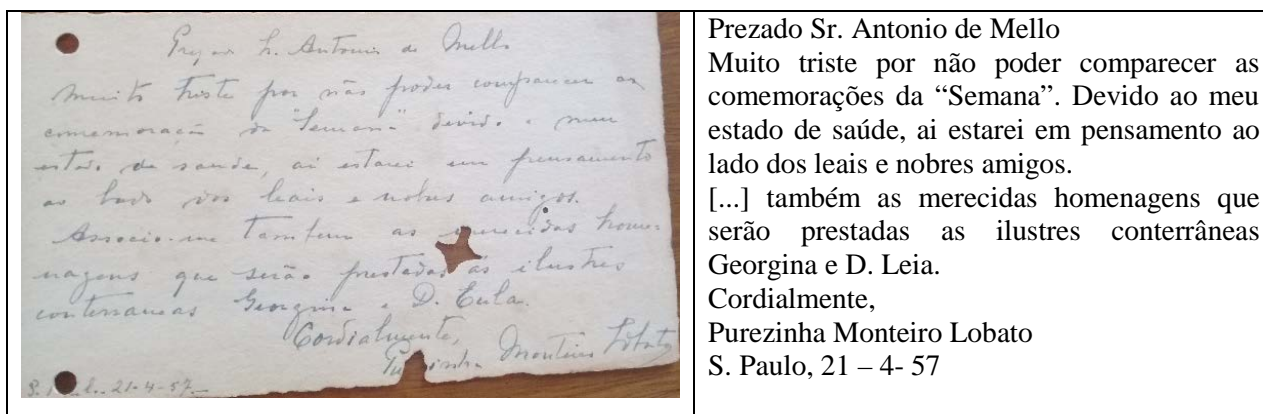 Antonio de Mello
Muito triste por não poder comparecer as
comemoração da "Semana" devido o meu
estado de saude, ai estarei em pensamento
ao lado dos leais e nobres amigos.
Associo-me tambem as merecidas home-
nagens que serão prestadas as ilustres
conterraneas Georgina e D. Eula.
Cordialmente,
Monteiro Lobato
21-4-57
Prezado Sr. Antonio de Mello
Muito triste por não poder comparecer as
comemorações da “Semana”. Devido ao meu
estado de saúde, ai estarei em pensamento ao
lado dos leais e nobres amigos.
[...] também as merecidas homenagens que
serão prestadas as ilustres conterrâneas
Georgina e D. Leia.
Cordialmente,
Purezinha Monteiro Lobato
S. Paulo, 21 – 4- 57